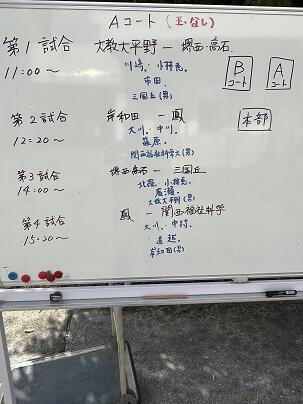 Aコート (玉・なし)
第1試合 大教大平野 ー 堺西・高石
11:00〜 川崎・小林亮
市田
三国丘(男)
B コート
A コート
第2試合 岸和田 ー 鳳
本部
12:20〜 大川・中川
篠原
関西福祉科学大(男)
第3試合 堺西・高石 ー 三国丘
14:00〜 小林亮
廣瀬
大教大平野(男)
第4試合 鳳 ー 関西福祉科学
15:20〜 大川・中村
岸和田(男)